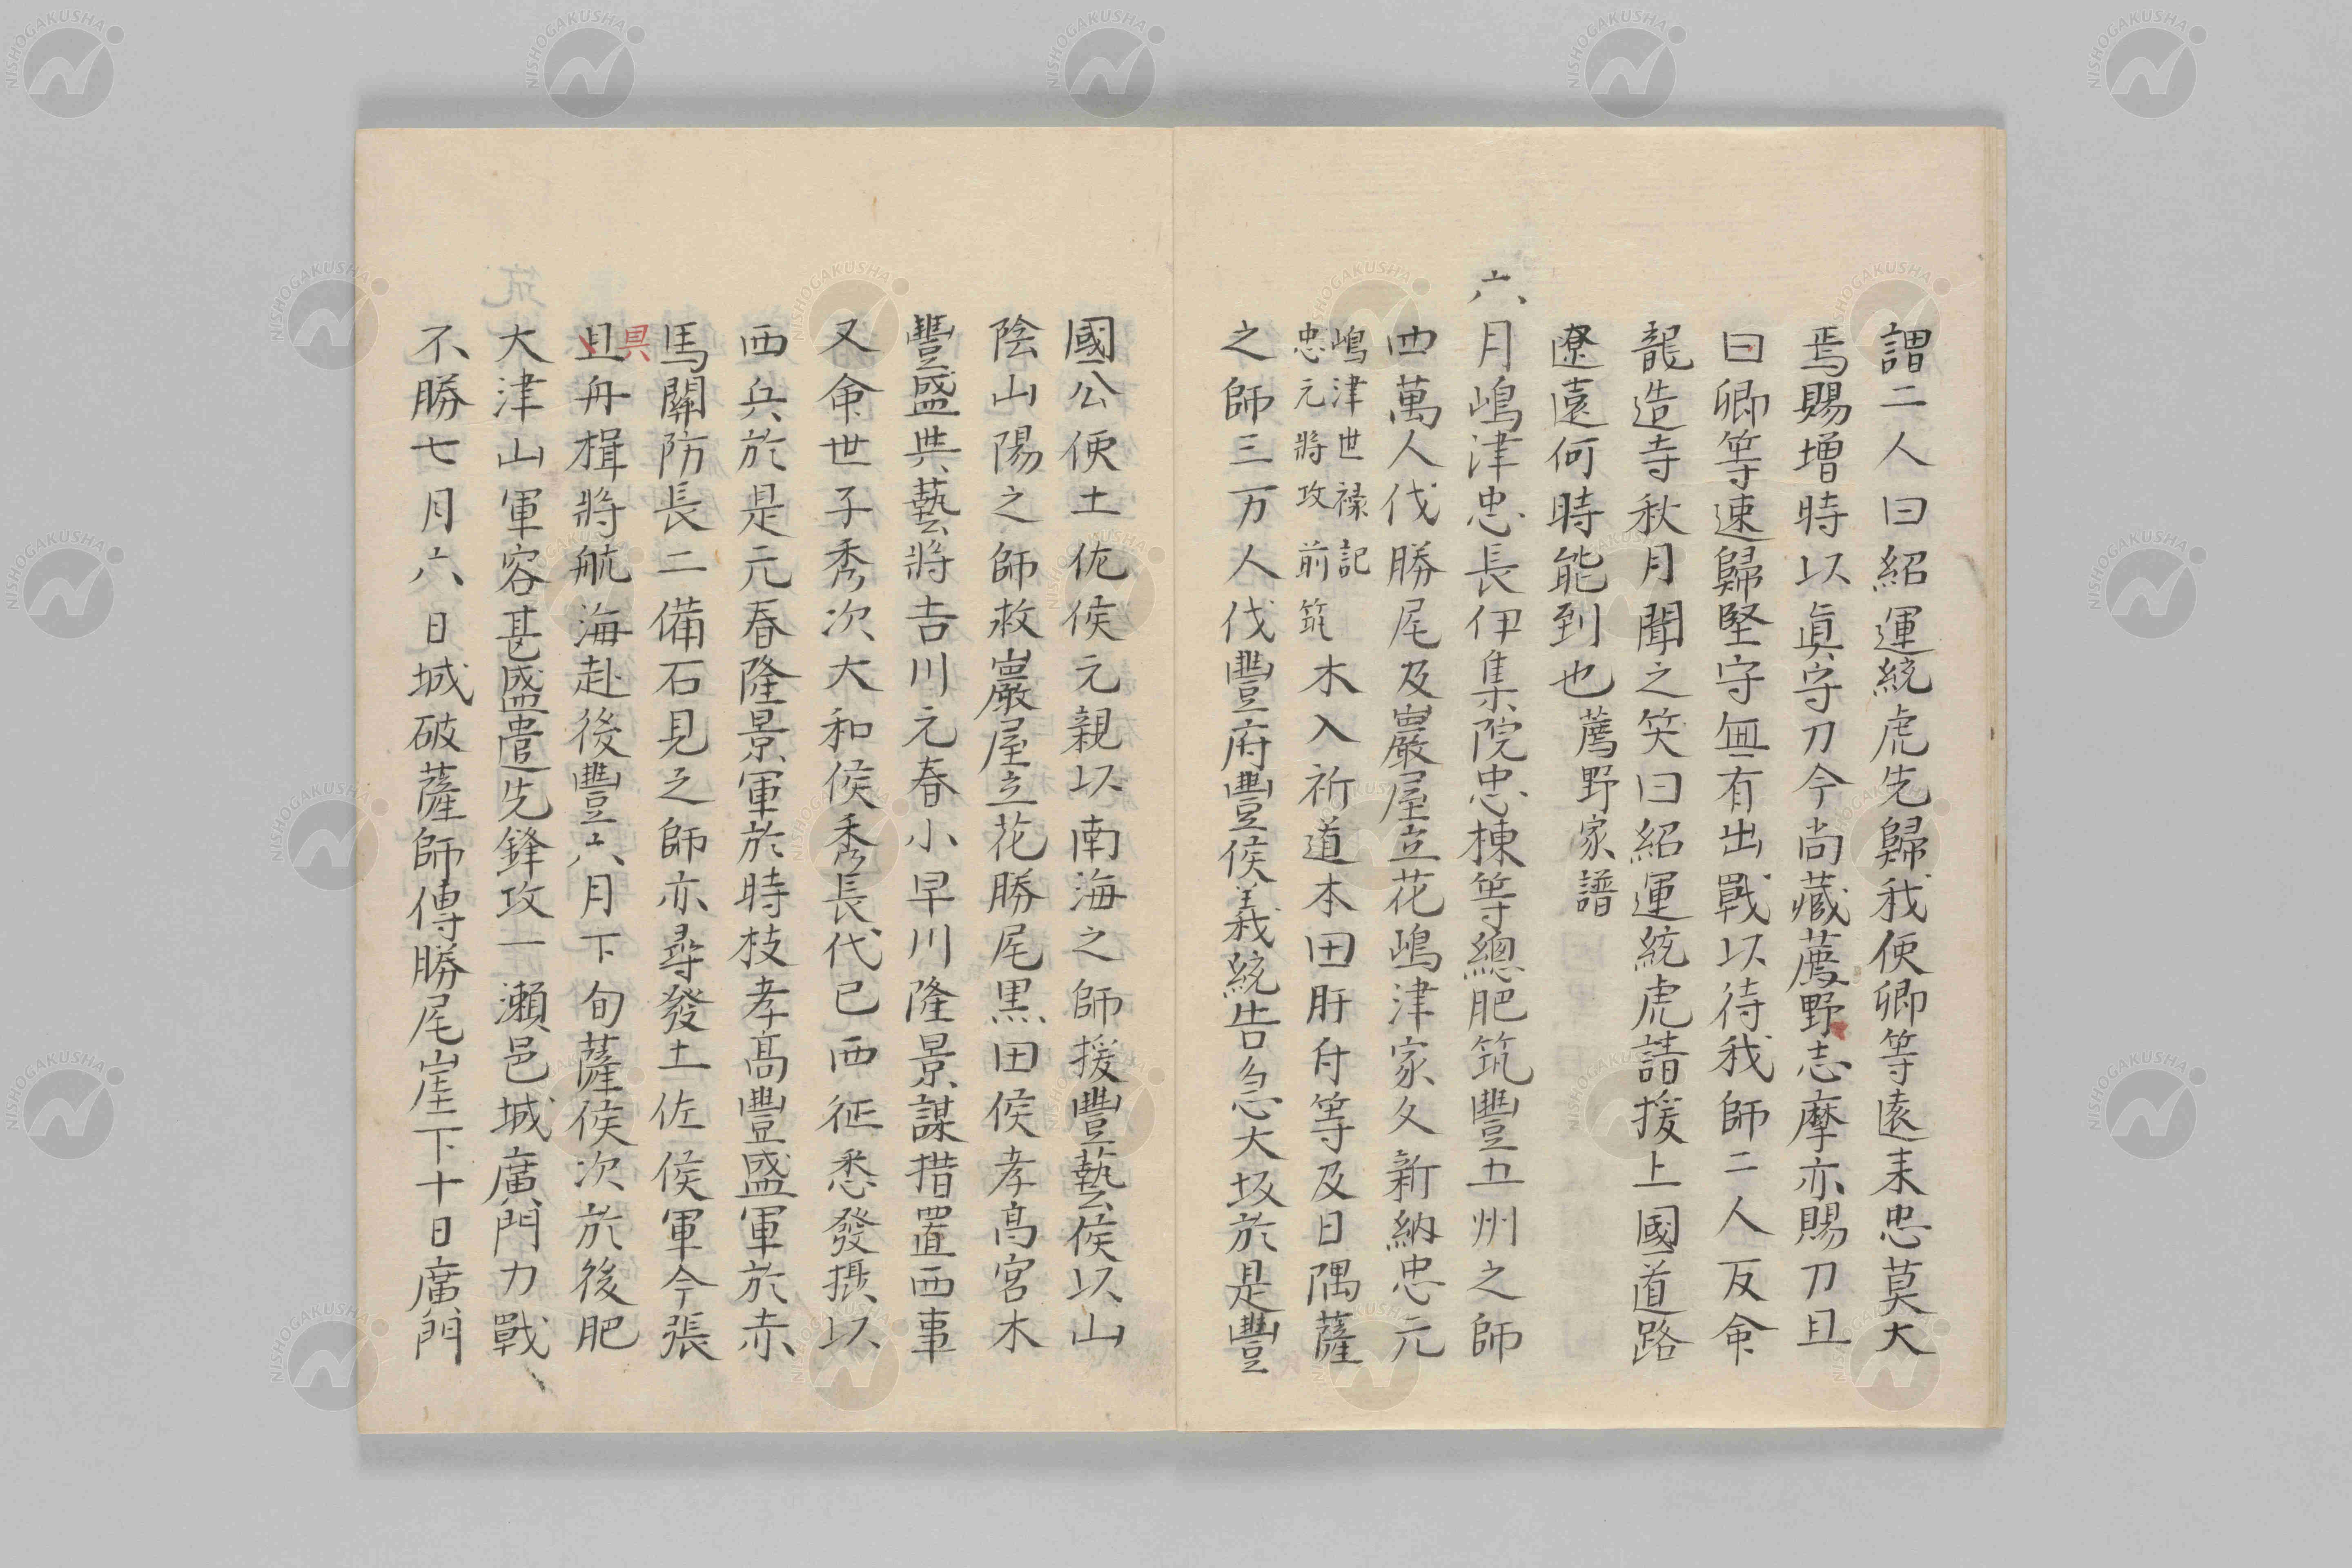 謂二人曰紹運統虎先歸我使卿等遠来忠莫大
焉賜增時以眞守刀今尚藏薦野志摩亦賜刀且
曰卿等速歸堅守無有出戰以待我師二人反命
龍造寺秋月聞之笑曰紹運統虎請援上國道路
遼遠何時能到也薦野家譜
六月嶋津忠長伊集院忠棟等總肥筑豐五州之師
四萬人伐勝尾及巖屋立花嶋津家久新納忠元
嶋津世祿記
忠元將攻前筑
木入祈道本田肝付等及日隅薩
之師三万人伐豐府豐侯義統告急大坂於是豐
國公使土佐侯元親以南海之師援豐藝侯以山
陰山陽之師救巖屋立花勝尾黒田侯孝高宮木
豐盛與藝將吉川元春小早川隆景謀措置西事
又命世子秀次大和侯秀長代己西征悉發攝以
西兵於是元春隆景軍於時枝孝高豐盛軍於赤
馬關防長二備石見之師亦尋發土佐侯軍今張
具
且舟楫將航海赴後豐六月下旬薩侯次於後肥
大津山軍容甚盛遣先鋒攻一瀬邑城廣門力戰
不勝七月六日城破薩師傳勝尾崖下十日廣門
NISHOGAKUSHA